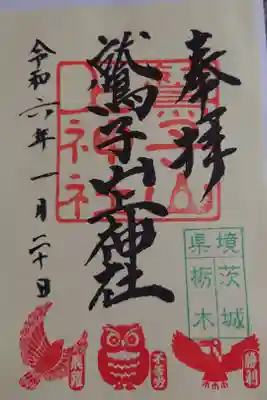 奉拝
鷲子山上神社
令和六年一月二十日
境
茨城
県
栃木
飛躍
不苦労
勝利